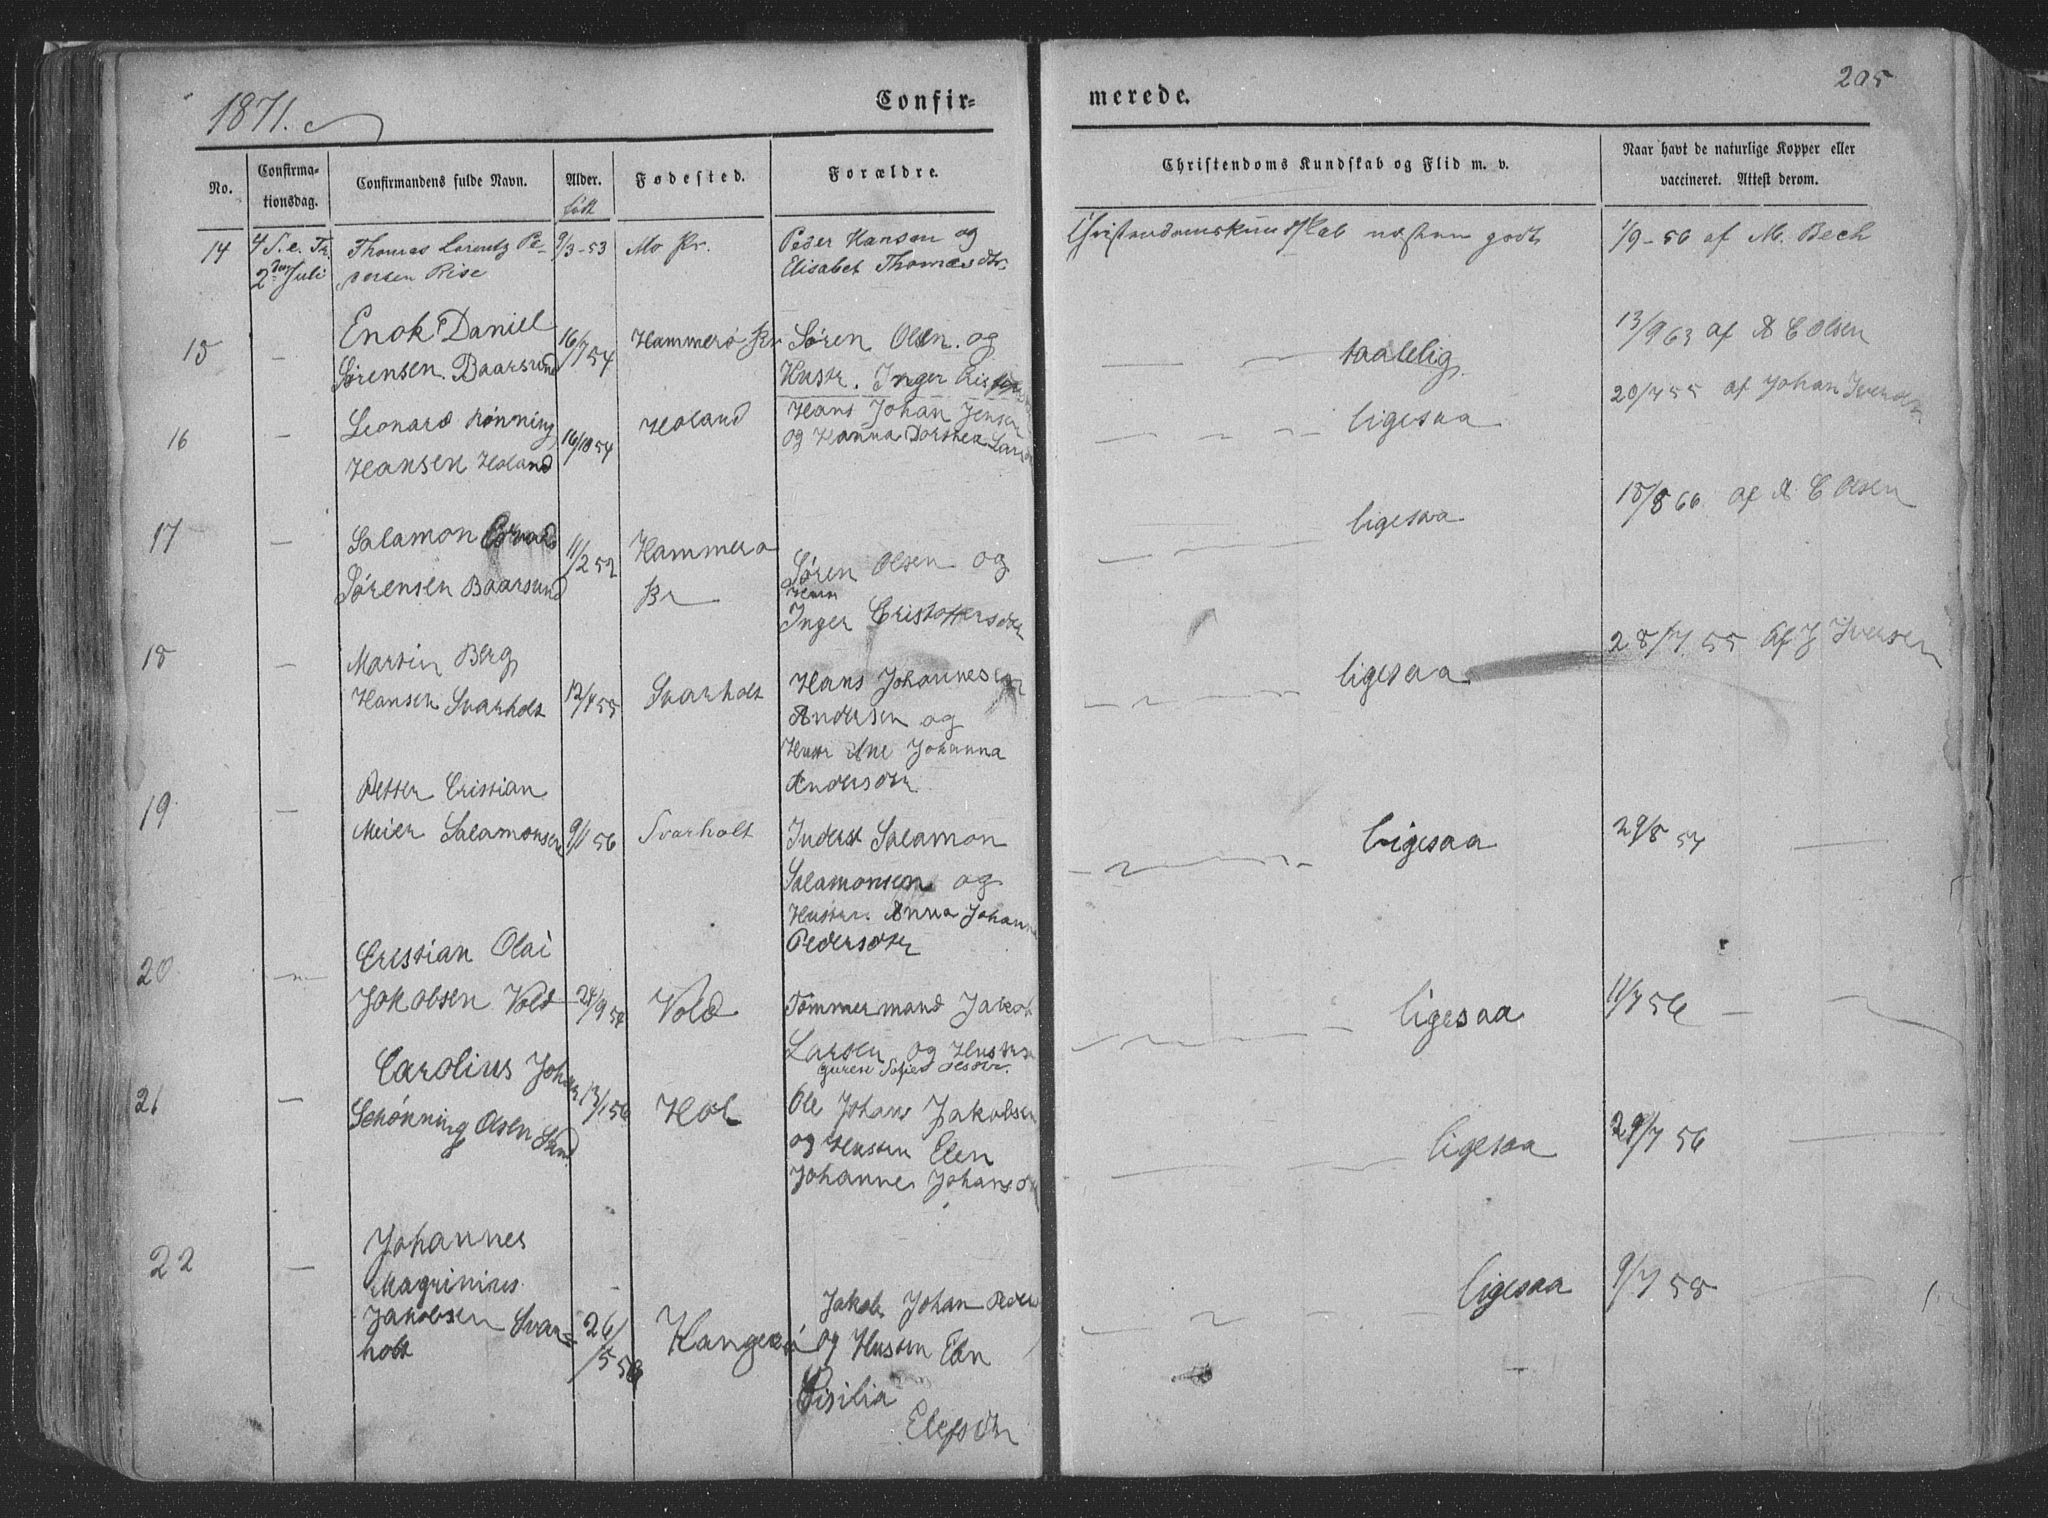 1871.
Confir=
merede.
205
No.
Confirma-
tionsdag.
Confirmandens fulde Navn.
Alder.
født
Fødested.
Forældre.
Christendoms Kundskab og Flid m. v.
Naar havt de naturlige Kopper eller
vaccineret. Attest derom.
14 4 S. e. Tr. Thomas Lorentz Pe- 9/3-53 Mo Pr. Peder Hansen og Christendomskundskab næsten godt 1/9-56 af M. Bech
2den Juli dersen Rise Elisabet Thomasdtr.
Enok Daniel
15 — Sørensen Baarsund 16/7 54 Hammerø Pr Søren Olsen og taalelig 13/9 63 af A C Olsen
Hustr. Inger
Leonard Rønning Hans Johan Jensen
16 — Hansen Holand 16/10 54 Holand og Hanna Dorthea ligesaa 20/7 55 af Johan
17 — Salamon 11/2 52 Hammerø Søren Olsen og ligesaa 18/8 66 af A C Olsen
Sørensen Baarsund Pr
Inger Cristoffersdtr
18 — Martin Berg
Hansen Svarholt 12/4 55 Svarholt Hans Johannes ligesaa 28/7 55 af J Iversen
Andersen og
Hustr Ane Johanna
Andersdtr
Petter Cristian
19 — Meier Salamonsen 9/1 56 Svarholt Inderst Salamon ligesaa 29/8 57
Salamonsen og
Hustru Anna Johanna
Pedersdtr
Cristian Olai
20 — Jakobsen Vold 28/9 54 Vold Tømmermand Jakob ligesaa 11/7 56
Larsen og Hustru
Guren Sofie Olsdtr.
Carolius Johan
21 — Schønning Olsen 13/1 56 Hol Ole Johan Jakobsen ligesaa 29/7 56
og Hustru Elen
Johanne
22 — Johannes
Magrinius
Jakobsen Svar= 26/5 Jakob Johan Peder ligesaa 9/7 58
holt og Hustru Elen
Cisilia
Elefsdtr